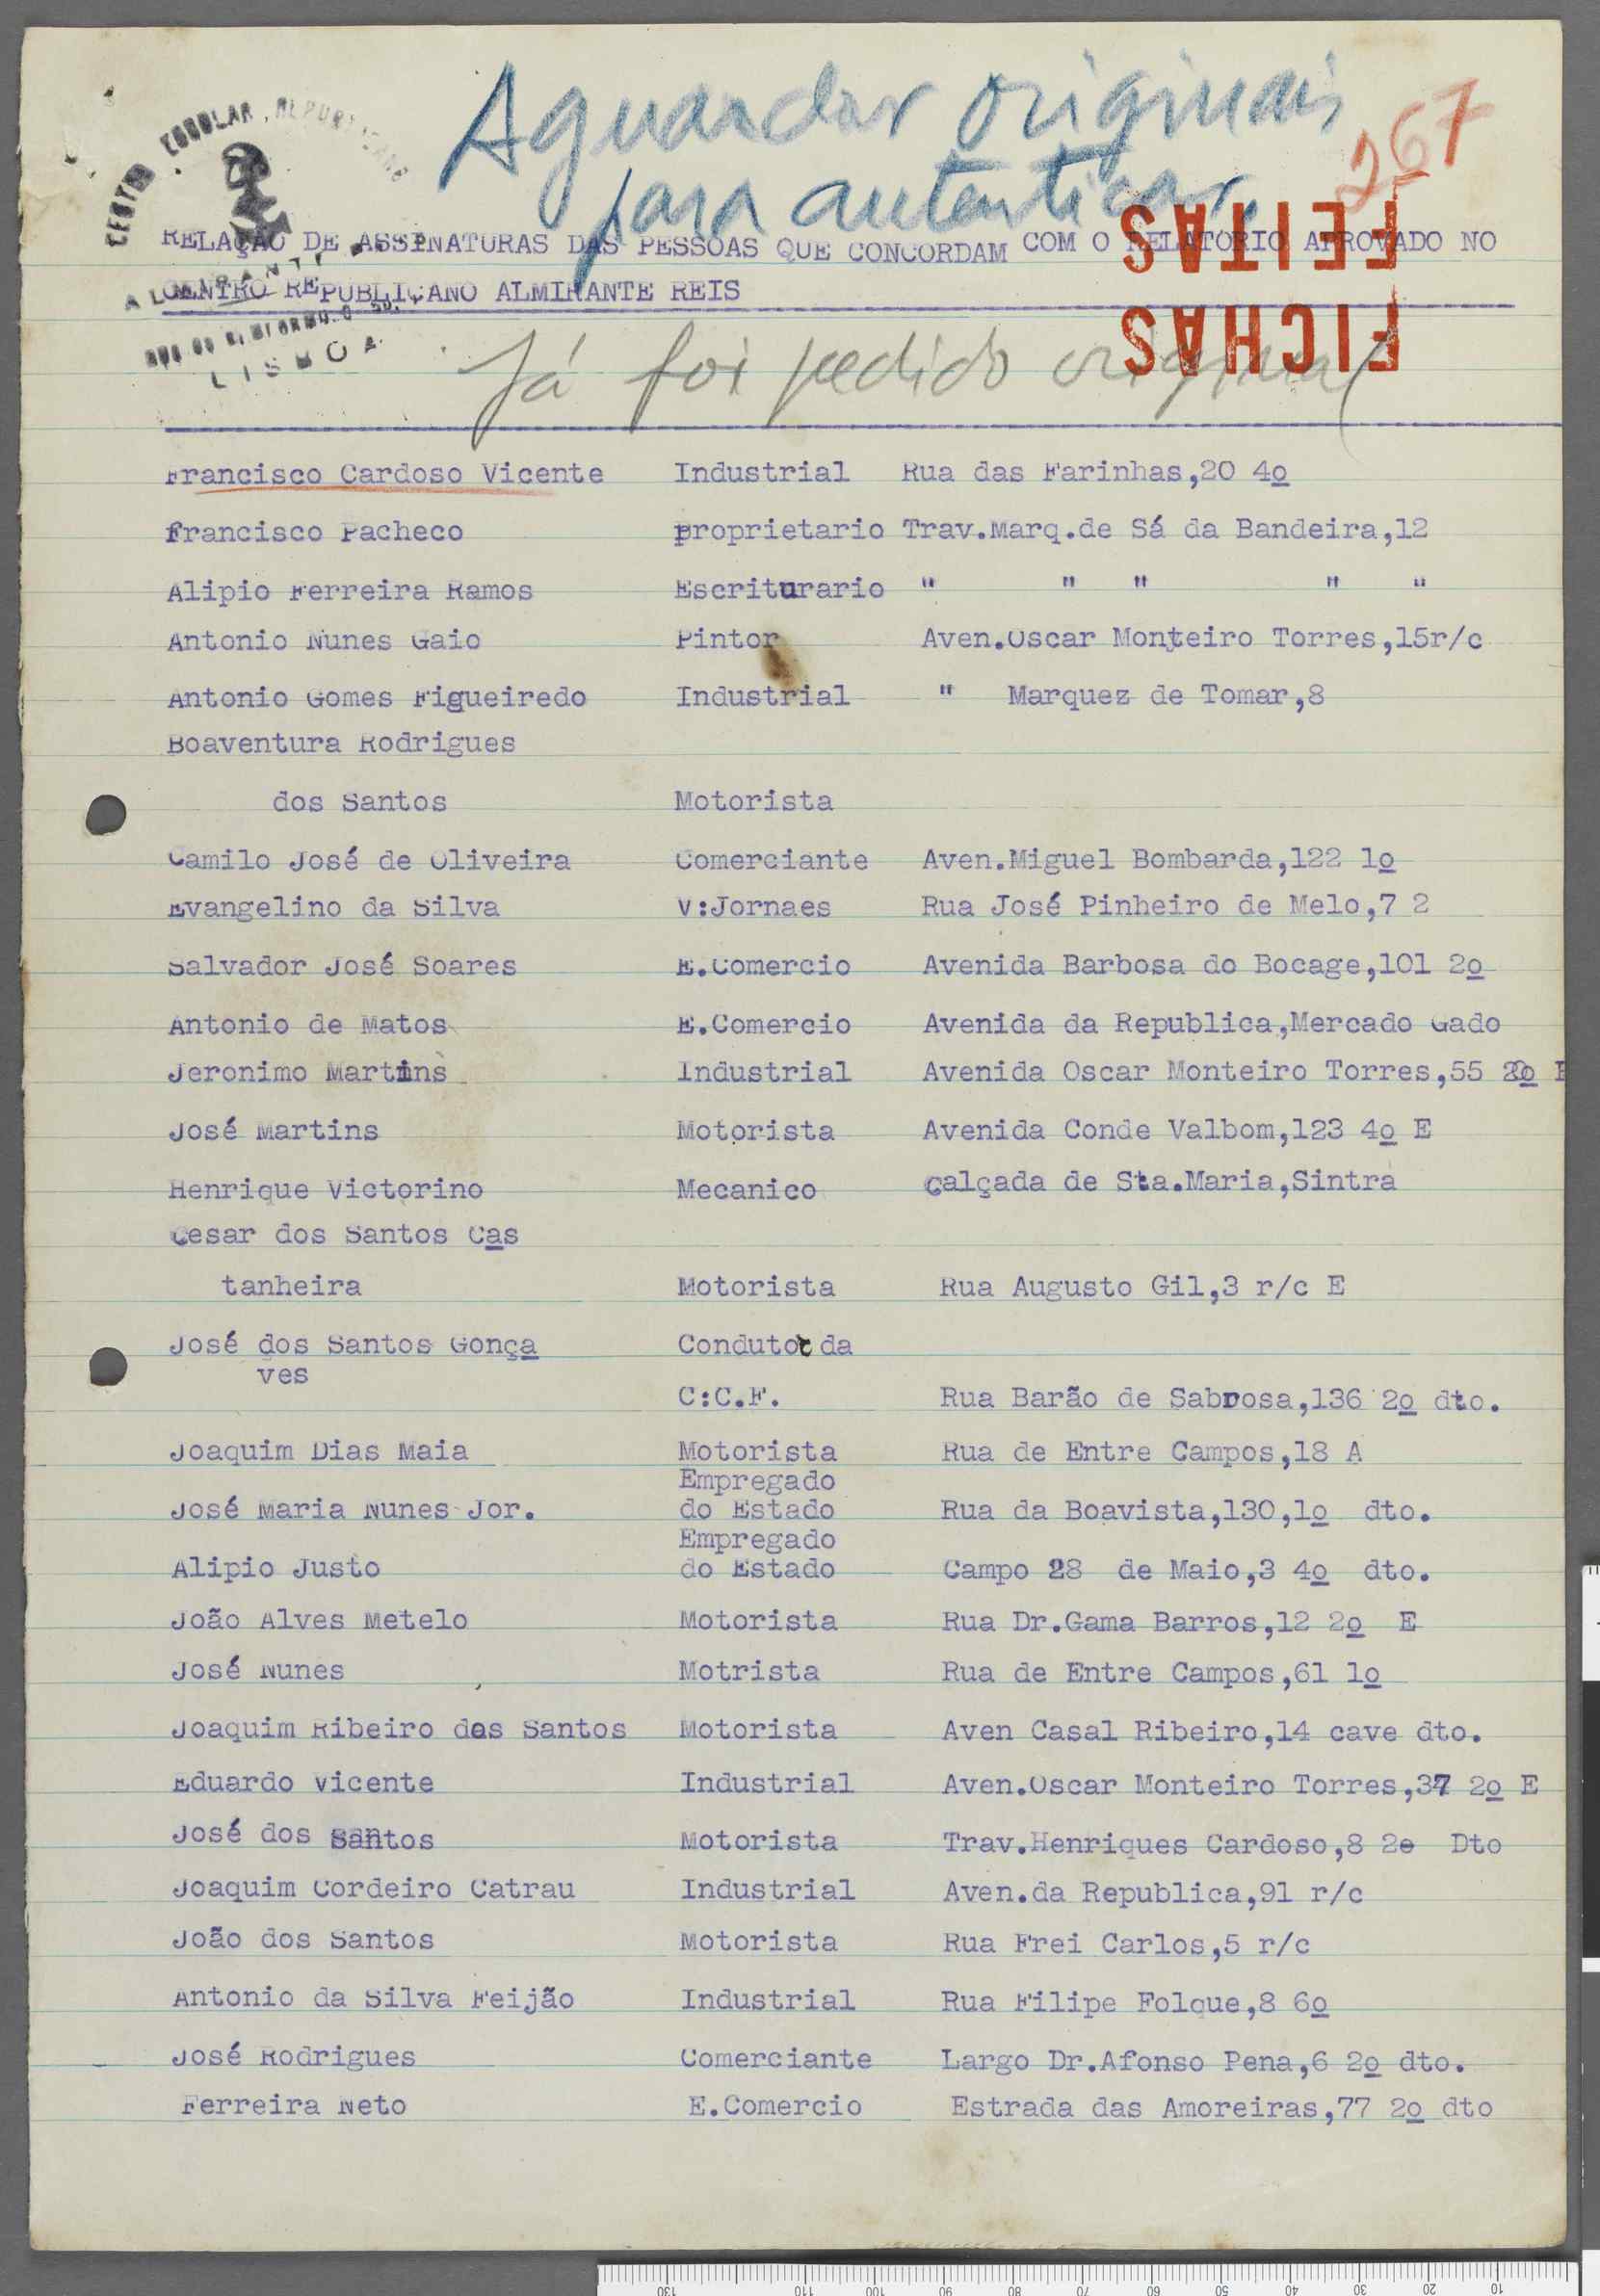 Aguardar originais
para autenticar
267
CENTRO ESCOLAR REPUBLICANO
ALMIRANTE REIS
LISBOA
FICHAS
FEITAS
RELAÇÃO DE ASSINATURAS DAS PESSOAS QUE CONCORDAM COM O RELATORIO APROVADO NO
CENTRO REPUBLICANO ALMIRANTE REIS
Já foi pedido original
Francisco Cardoso Vicente Industrial Rua das Farinhas,20 4º
Francisco Pacheco proprietario Trav.Marq.de Sá da Bandeira,12
Alipio Ferreira Ramos Escriturario " " " " "
Antonio Nunes Gaio Pintor Aven.Oscar Monteiro Torres,15r/c
Antonio Gomes Figueiredo Industrial " Marquez de Tomar,8
Boaventura Rodrigues
dos Santos Motorista
Camilo José de Oliveira Comerciante Aven.Miguel Bombarda,122 1º
Evangelino da Silva V:Jornaes Rua José Pinheiro de Melo,7 2
Salvador José Soares E.Comercio Avenida Barbosa do Bocage,101 2º
Antonio de Matos E.Comercio Avenida da Republica,Mercado Gado
Jeronimo Martins Industrial Avenida Oscar Monteiro Torres,55 2º E
José Martins Motorista Avenida Conde Valbom,123 4º E
Henrique Victorino Mecanico Calçada de Sta.Maria,Sintra
Cesar dos Santos Cas
tanheira Motorista Rua Augusto Gil,3 r/c E
José dos Santos Gonça Condutor da
ves
C:C.F. Rua Barão de Sabrosa,136 2º dto.
Joaquim Dias Maia Motorista Rua de Entre Campos,18 A
Empregado
José Maria Nunes Jor. do Estado Rua da Boavista,130,1º dto.
Empregado
Alipio Justo do Estado Campo 28 de Maio,3 4º dto.
João Alves Metelo Motorista Rua Dr.Gama Barros,12 2º E
José Nunes Motrista Rua de Entre Campos,61 1º
Joaquim Ribeiro dos Santos Motorista Aven Casal Ribeiro,14 cave dto.
Eduardo Vicente Industrial Aven.Oscar Monteiro Torres,37 2º E
José dos Santos Motorista Trav.Henriques Cardoso,8 2º Dto
Joaquim Cordeiro Catrau Industrial Aven.da Republica,91 r/c
João dos Santos Motorista Rua Frei Carlos,5 r/c
Antonio da Silva Feijão Industrial Rua Filipe Folque,8 6º
José Rodrigues Comerciante Largo Dr.Afonso Pena,6 2º dto.
Ferreira Neto E.Comercio Estrada das Amoreiras,77 2º dto